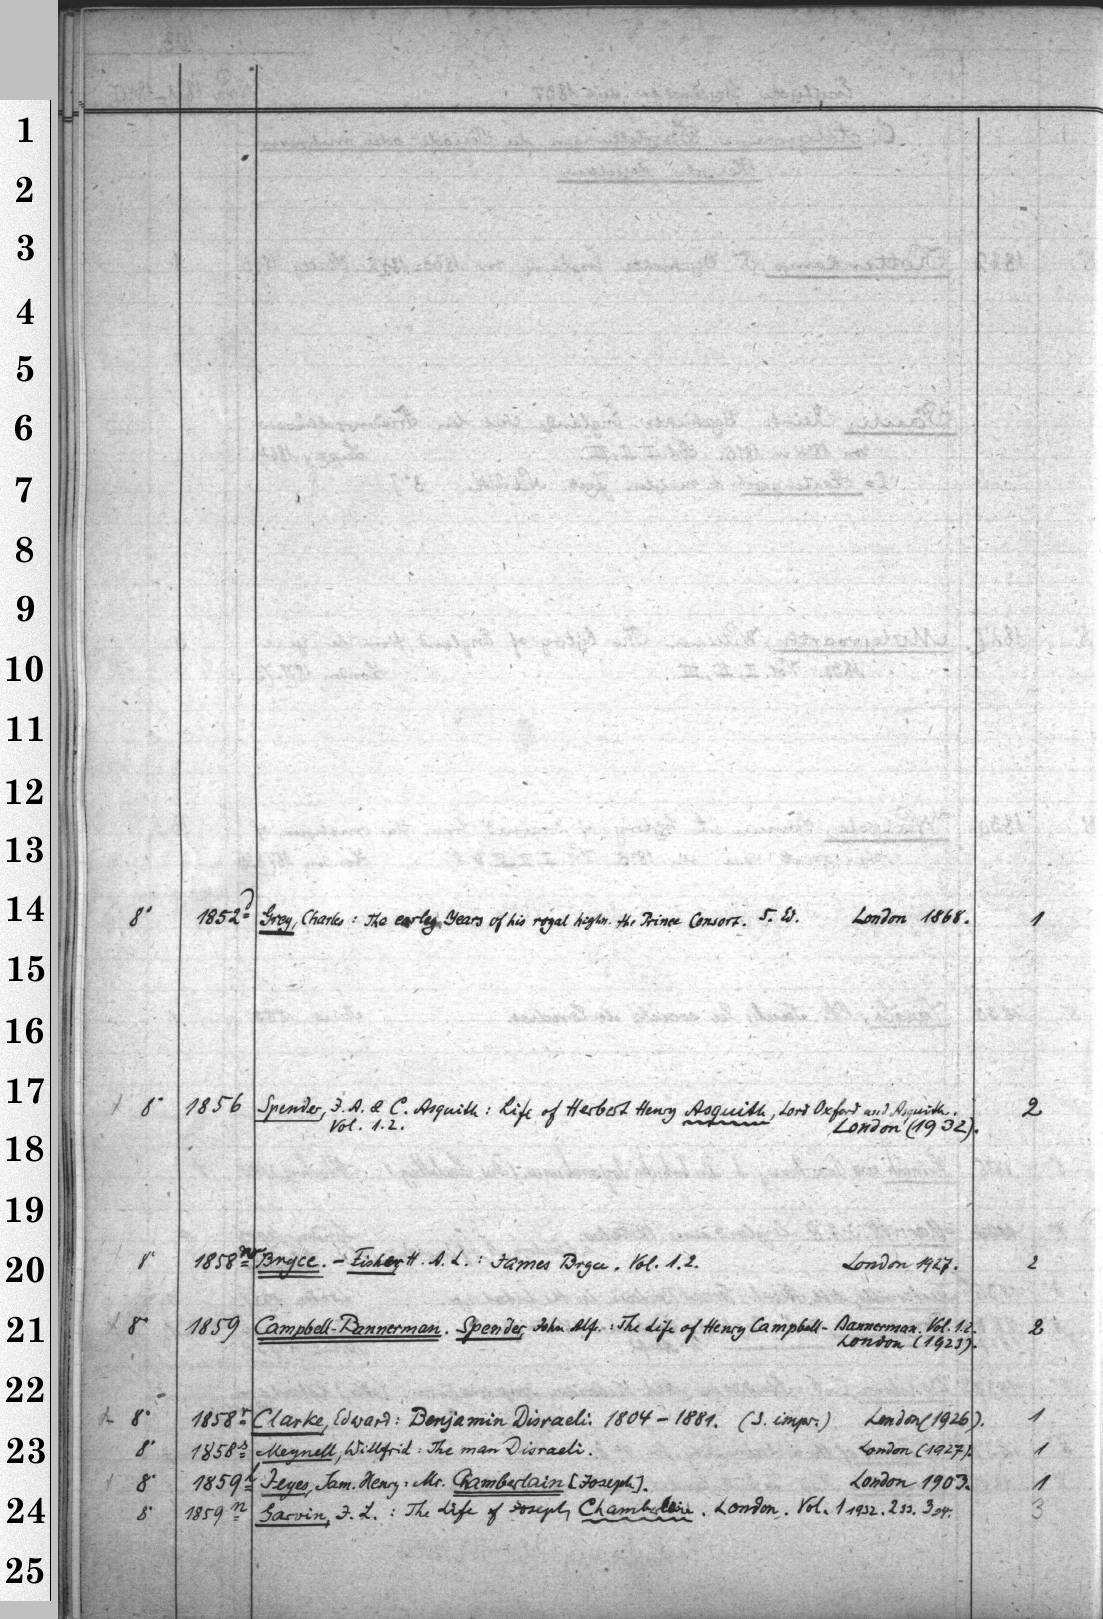 1
2
3
4
5
6
7
8
9
10
11
12
13
14
15
16
17
18
19
20
21
22
23
24
25
8° 1852d Grey, Charles: The early Years of his royal highn. the Prince Consort. 5. Ed. London 1868. 1
8° 1856 Spender, J. A. & C. Asquith: Life of Herbert Henry Asquith, Lord Oxford and Asquith.
Vol. 1.2. London (1932). 2
8° 1858m Bryce. – Fisher H. A. L.: James Bryce. Vol. 1.2. London 1927. 2
8° 1859 Campbell-Bannerman. Spender, John Alf.: The Life of Henry Campbell-Bannerman. Vol. 1.2.
London (1923). 2
8° 1858r Clarke, Edward: Benjamin Disraeli. 1804 – 1881. (3. impr.) London (1926). 1
8° 1858s Meynell, Willfrid: The man Disraeli. London (1927). 1
8° 1859d Jeyes, Sam. Henry: Mr. Chamberlain [Joseph]. London 1903. 1
8° 1859n Garvin, J. L.: The Life of Joseph Chamberlain. London. Vol. 1 1932. 2 33. 3 34. 3